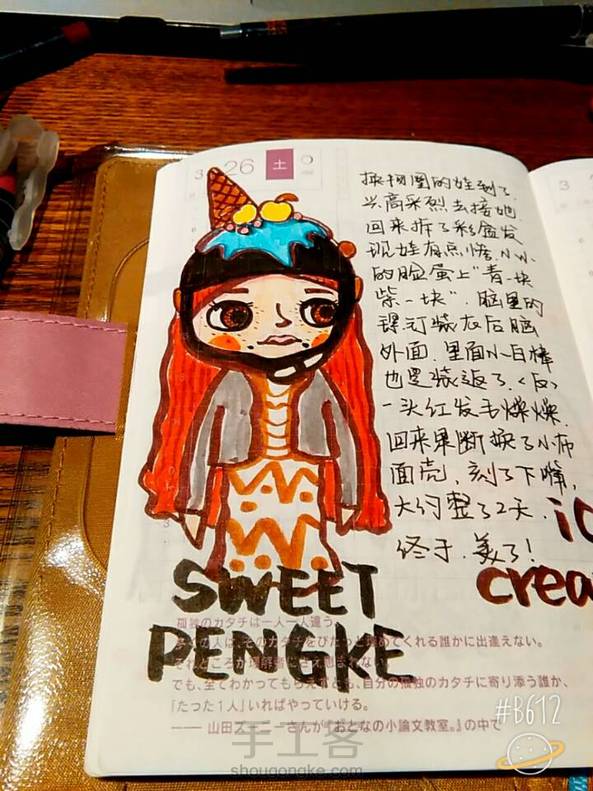 3 26 土
换物圈的娃到了,
兴高采烈去接她
回来拆了彩盒发
现娃有点惨.N.W.
的脸蛋上"青一块
紫一块".脑里的
钉装在后脑
外面.里面小白棒
也是装返了.<反>
一头红发毛燥燥.
回来果断换了小布
面壳、刻了下嘴,
大约整了2天.
终于.美了!
3
ic
crea
SWEET
PENGKE
孤独のカタチは一人一人違う。
人は、そのカタチをぴたっと めてくれる誰かに出逢えない。
それどころか理解者にさえ恵まれな
でも、全てわかってもらえずとも、自分の孤独のカタチに寄り添う誰か、
「たった1人」いればやっていける。
—— 山田ズ さんが『おとなの小論文教室。』の中で
#B612
手工客
shougongke.com